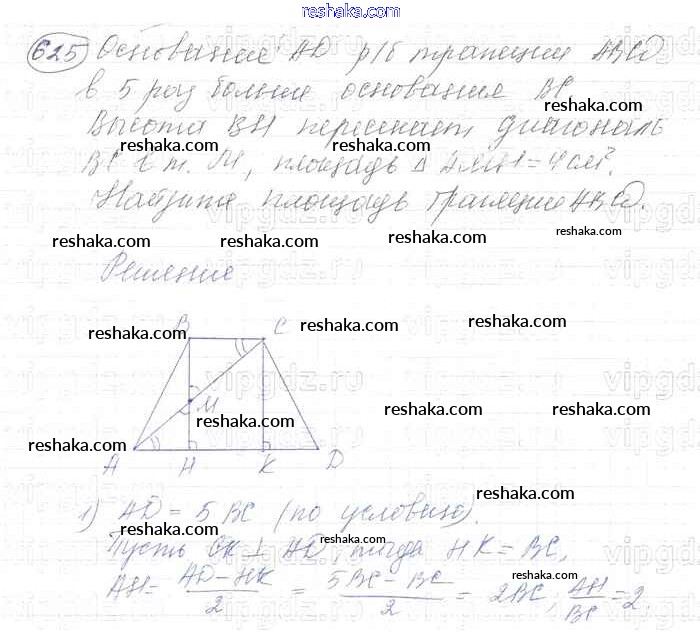 reshaka.com
625 Основание AD р/б трапеции ABCD
в 5 раз больше основания BC.
reshaka.com
Высота BH пересекает диагональ
reshaka.com reshaka.com
BC в т. M, площадь Δ AMH = 4 см².
reshaka.com
Найдите площадь трапеции ABCD.
reshaka.com reshaka.com reshaka.com reshaka.com
Решение
B C
reshaka.com reshaka.com reshaka.com
M
reshaka.com reshaka.com reshaka.com
reshaka.com
A H K D
reshaka.com
1) AD = 5 BC (по условию).
reshaka.com
Пусть CK ⊥ AD, тогда HK = BC,
reshaka.com
AH = AD − HK / 2 = 5BC − BC / 2 = 2BC; AH / BC = 2.
reshaka.com reshaka.com